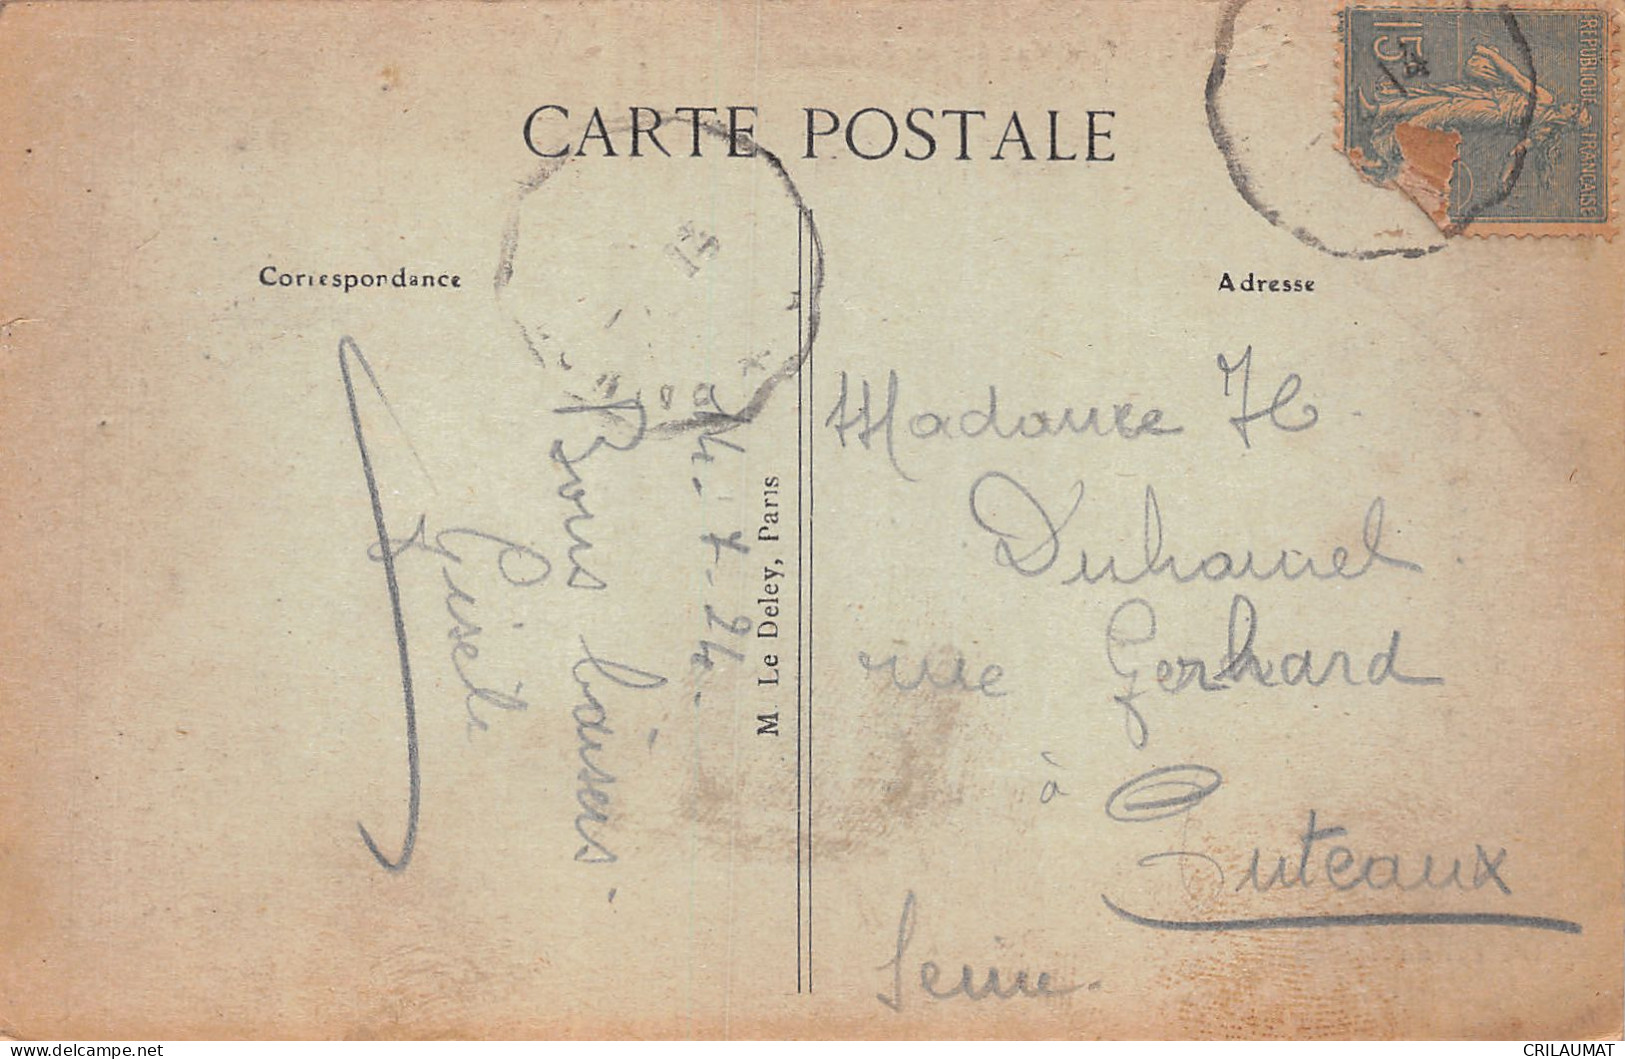 CARTE POSTALE
Correspondance
Adresse
15c
REPUBLIQUE FRANÇAISE
24.7.24.
Bons baisers.
Gisèle
M. Le Deley, Paris
Madame H.
Duhamel.
rue Gerhard
à
Puteaux
Seine.
CRILAUMAT